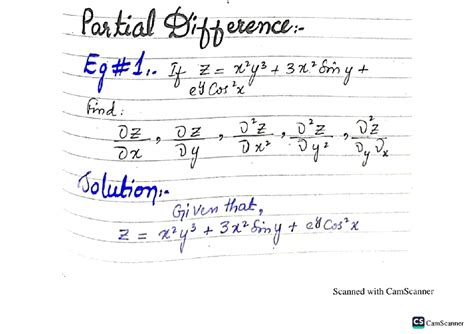 Partial Difference:-
Eg#1:- If z = x²y³ + 3x² Sin y +
e^y Cos²x
Find:
∂z/∂x , ∂z/∂y , ∂²z/∂x² , ∂²z/∂y² , ∂²z/∂y∂x
Solution:-
Given that,
z = x²y³ + 3x² Sin y + e^y Cos²x
Scanned with CamScanner
CS CamScanner